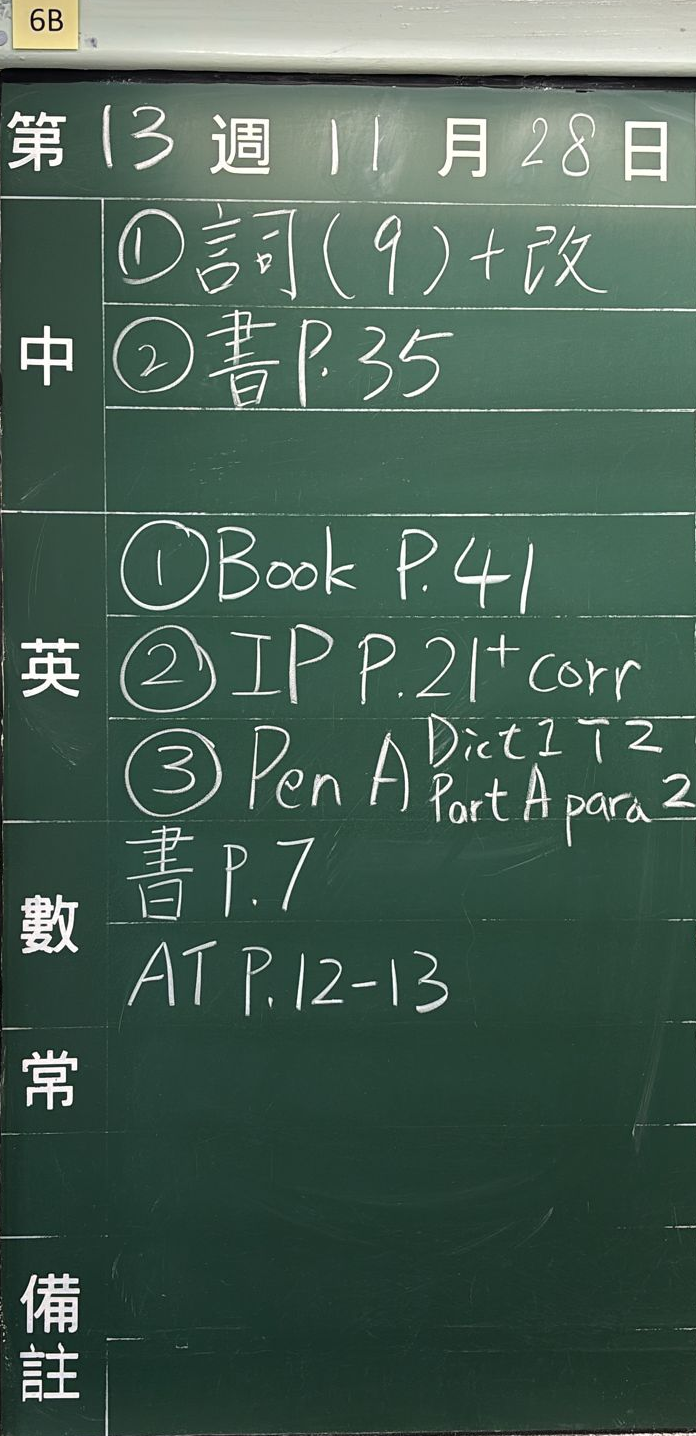 6B
第 13 週 11 月 28 日
中
① 詞(9)+改
② 書 P.35
英
① Book P.41
② IP P.21+ corr
③ Pen A Dict 1 T 2
Part A para 2
數
書 P.7
AT P.12-13
常
備註